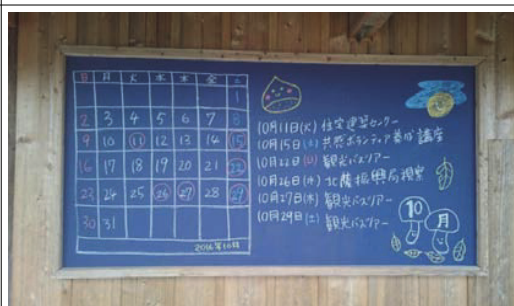 日 月 火 水 木 金 土
1
2 3 4 5 6 7 8
9 10 11 12 13 14 15
16 17 18 19 20 21 22
23 24 25 26 27 28 29
30 31
2016年10月
10月11日(火) 住宅建築センター
10月15日(土) 共然ボランティア養成講座
10月22日(日) 観光バスツアー
10月26日(水) 北薩振興局視察
10月27日(木) 観光バスツアー
10月29日(土) 観光バスツアー
10月